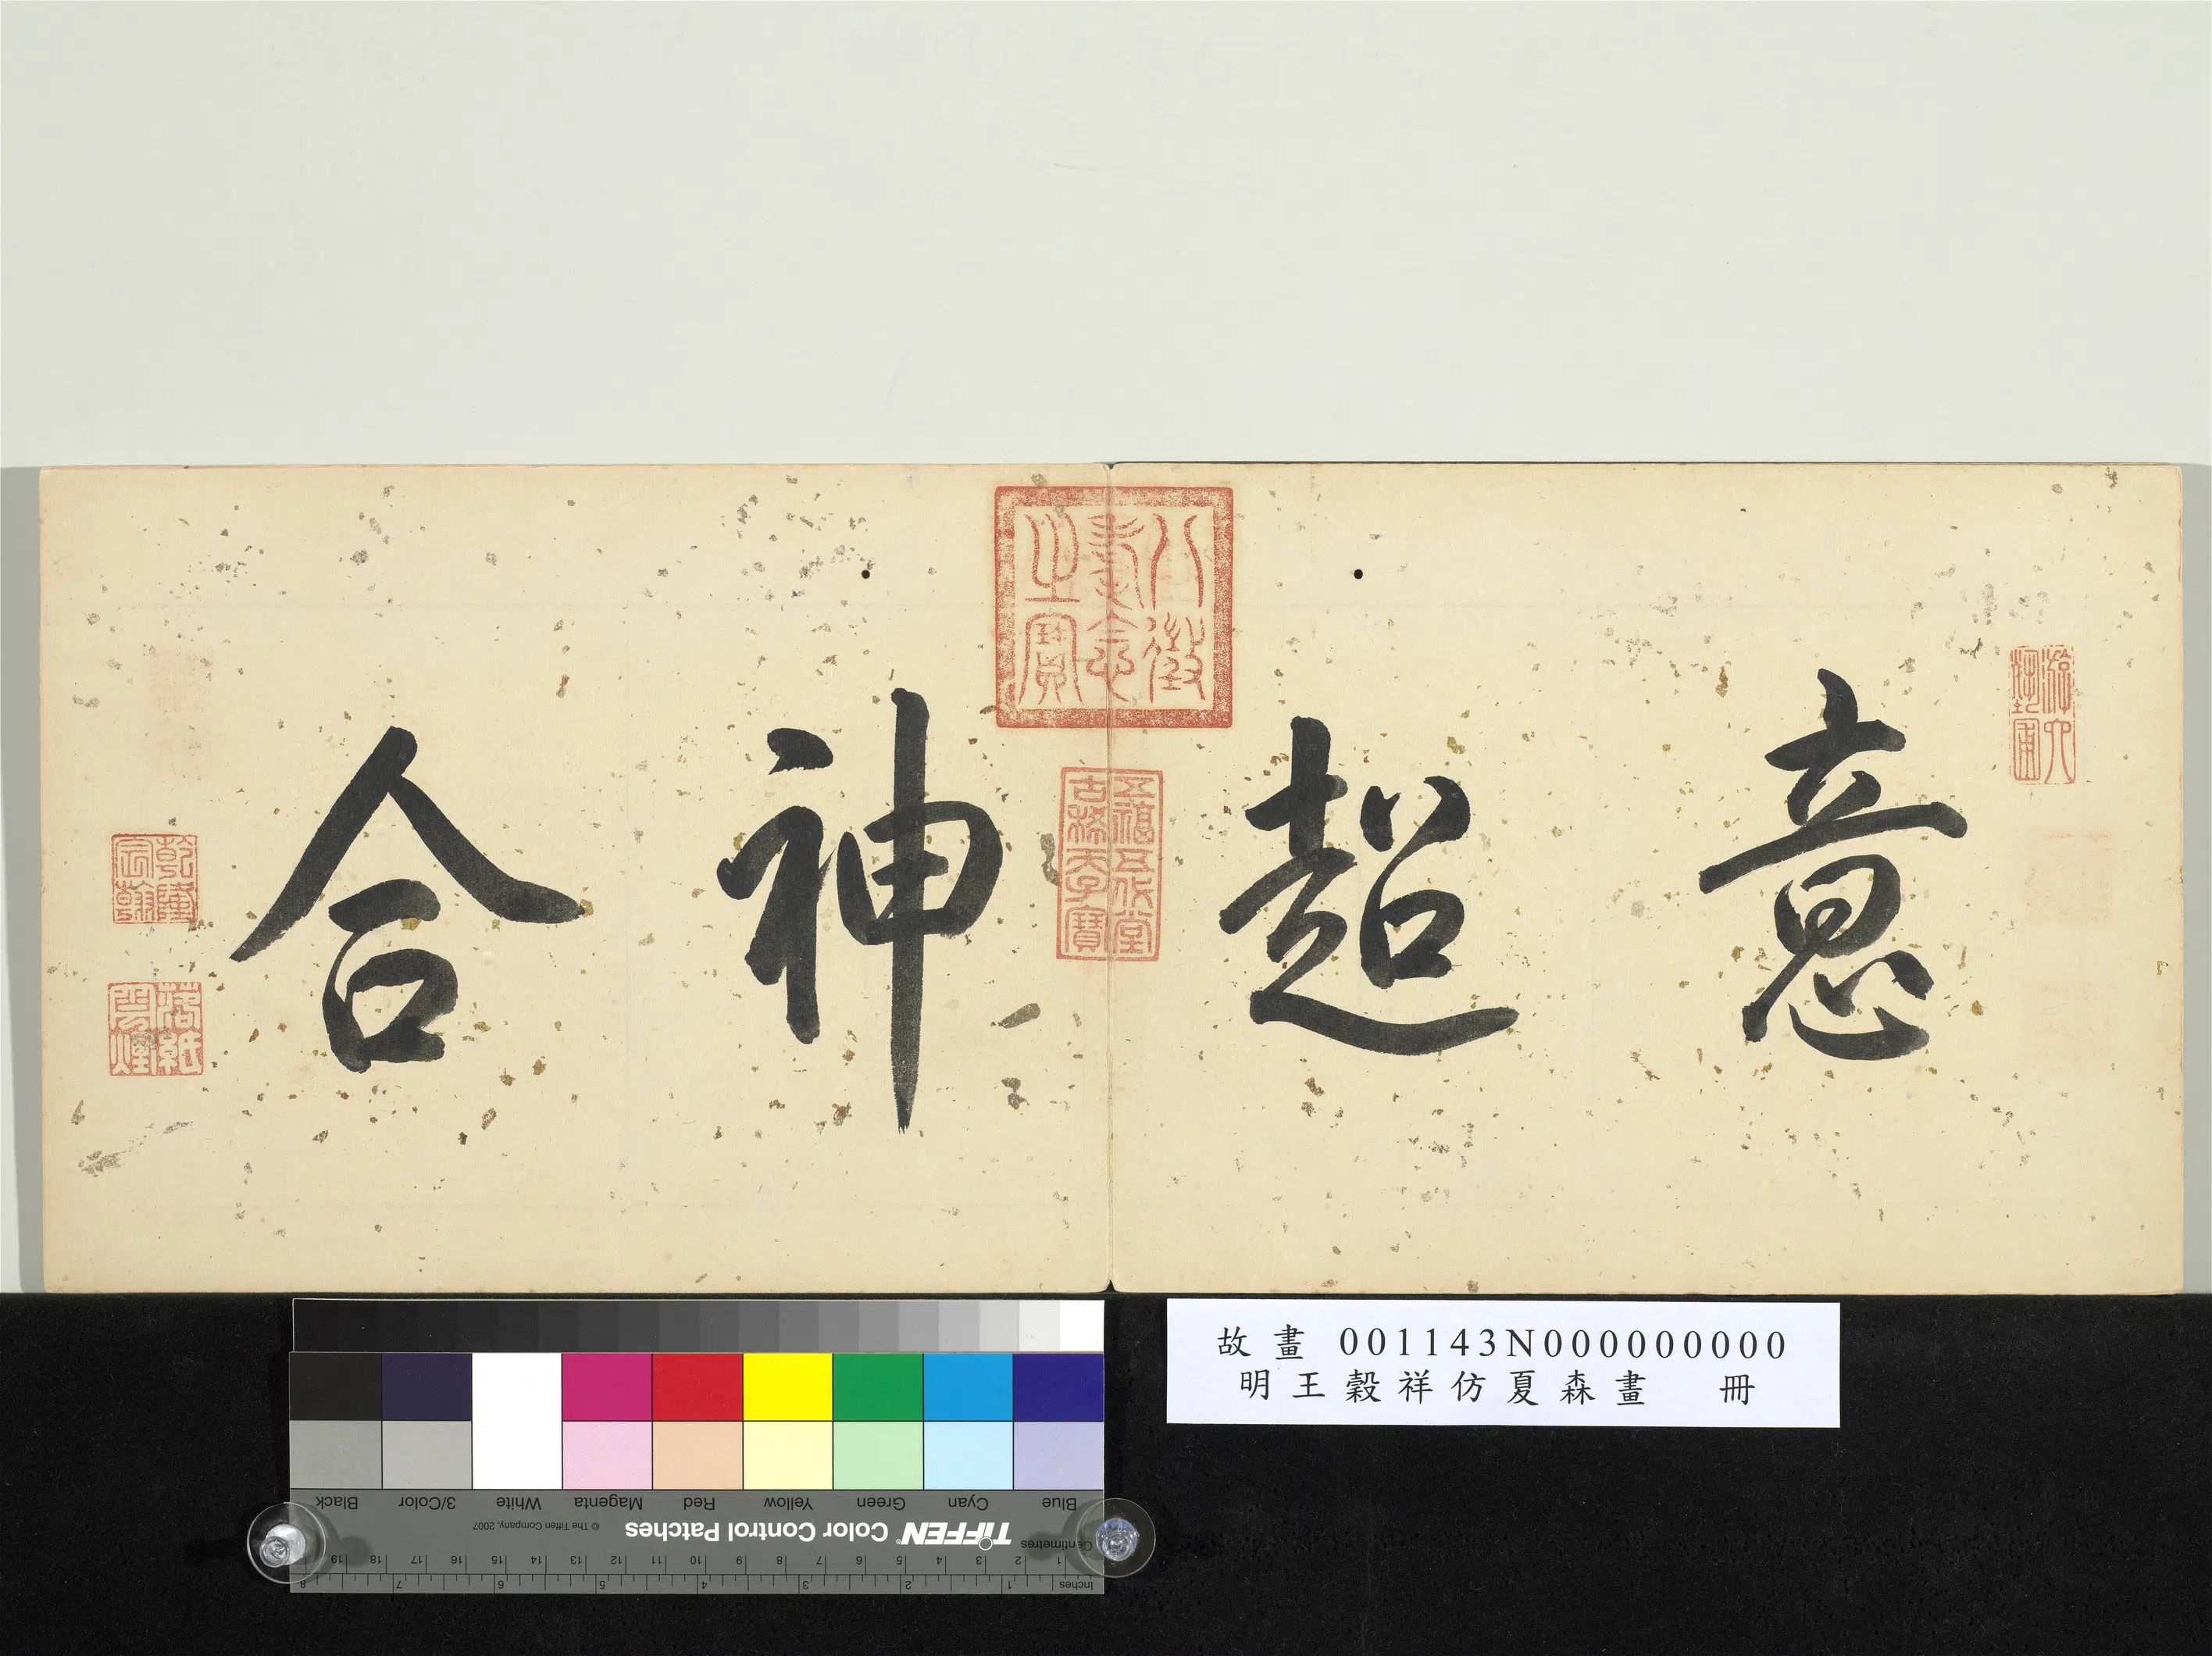 意超神合
八徵耄念之寶
五福五代堂古稀天子寶
游六藝圃
乾隆宸翰
落紙雲煙
故畫 001143N000000000
明王穀祥仿夏森畫 冊
Blue Cyan Green Yellow Red Magenta White 3/Color Black
TIFFEN® Color Control Patches © The Tiffen Company, 2007
Centimetres 1 2 3 4 5 6 7 8 9 10 11 12 13 14 15 16 17 18 19
Inches 1 2 3 4 5 6 7 8